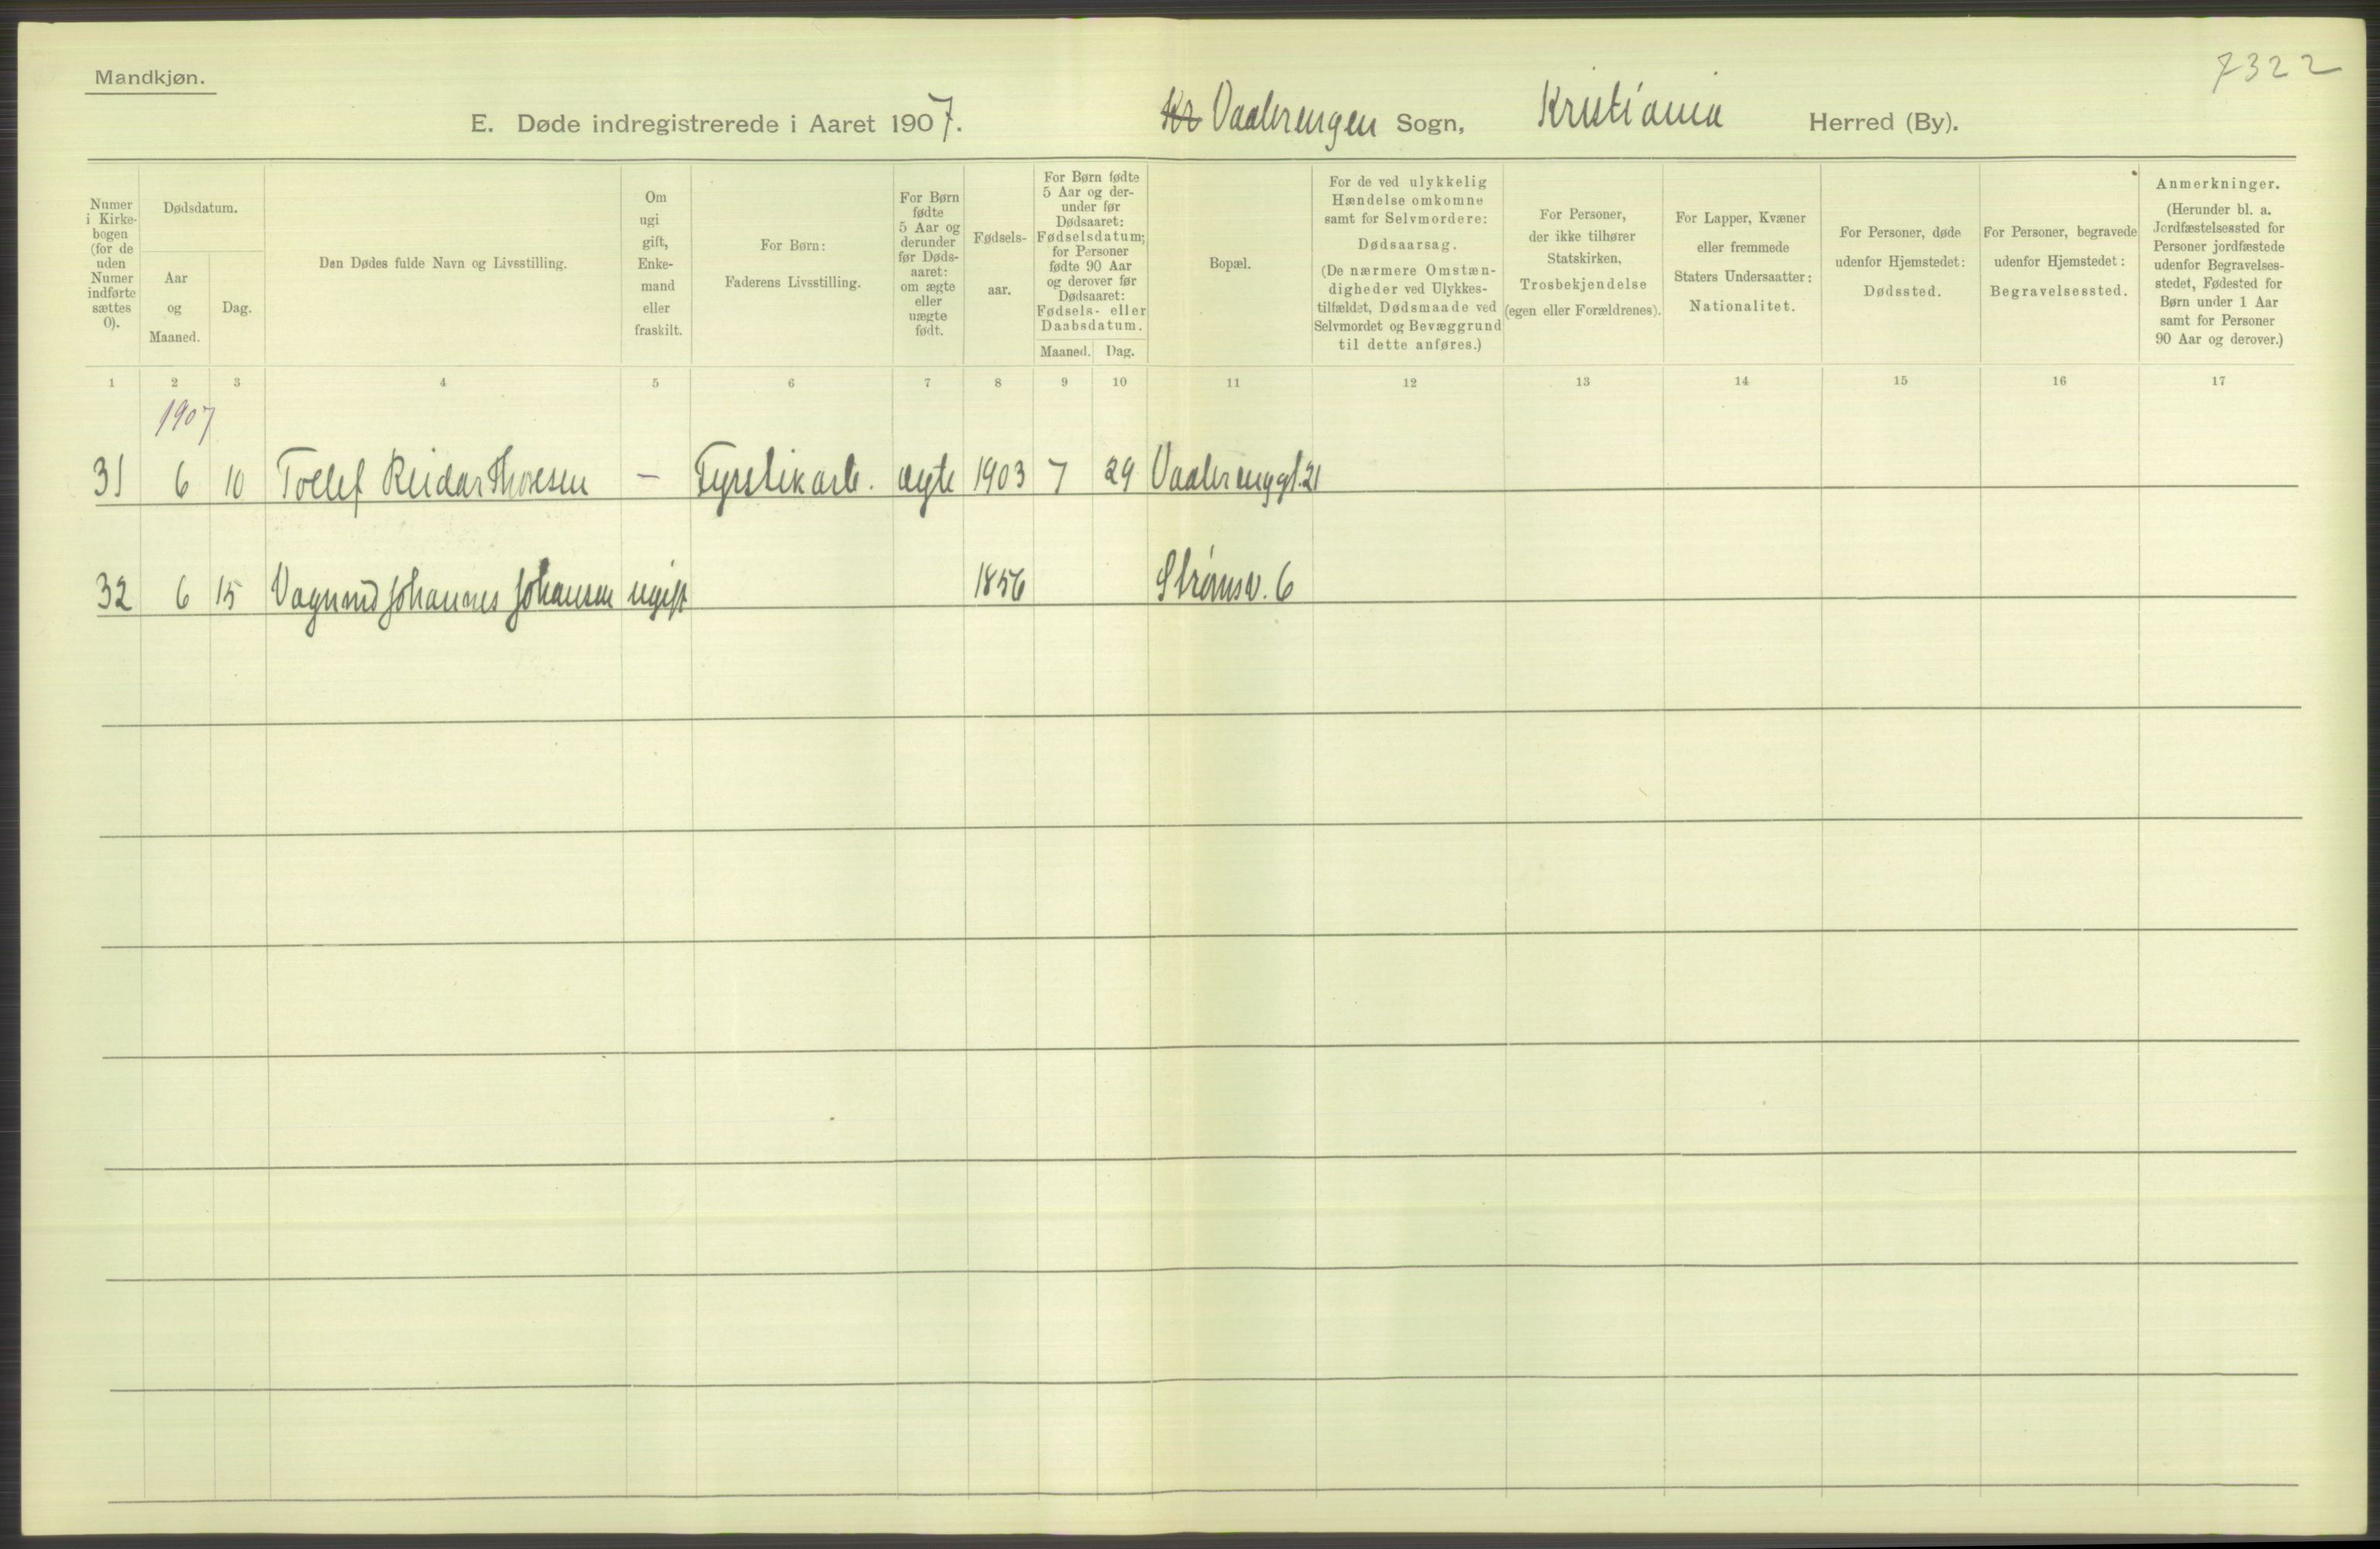 Mandkjøn.
7322
E. Døde indregistrerede i Aaret 1907. Kr Vaalerengen Sogn, Kristiania Herred (By).
Numer i Kirke-bogen (for de uden Numer indførte sættes 0).
Dødsdatum.
Aar og Maaned.
Dag.
Den Dødes fulde Navn og Livsstilling.
Om ugift, gift, Enke-mand eller fraskilt.
For Børn:
Faderens Livsstilling.
For Børn fødte 5 Aar og derunder før Døds-aaret: om ægte eller uægte født.
Fødsels-aar.
For Børn fødte 5 Aar og der-under før Dødsaaret: Fødselsdatum; for Personer fødte 90 Aar og derover før Dødsaaret: Fødsels- eller Daabsdatum.
Maaned. Dag.
Bopæl.
For de ved ulykkelig Hændelse omkomne samt for Selvmordere:
Dødsaarsag.
(De nærmere Omstæn-digheder ved Ulykkes-tilfældet, Dødsmaade ved Selvmordet og Bevæggrund til dette anføres.)
For Personer, der ikke tilhører Statskirken,
Trosbekjendelse
(egen eller Forældrenes).
For Lapper, Kvæner eller fremmede Staters Undersaatter:
Nationalitet.
For Personer, døde udenfor Hjemstedet:
Dødssted.
For Personer, begravede udenfor Hjemstedet:
Begravelsessted.
Anmerkninger.
(Herunder bl. a. Jordfæstelsessted for Personer jordfæstede udenfor Begravelses-stedet, Fødested for Børn under 1 Aar samt for Personer 90 Aar og derover.)
1 2 3 4 5 6 7 8 9 10 11 12 13 14 15 16 17
1907
31 6 10 Tollef Reidar Thoresen – Fyrstikarb. ægte 1903 7 29 Vaalerenggt. 21
32 6 15 Johannes Johansen ugift 1856 Strømsv. 6